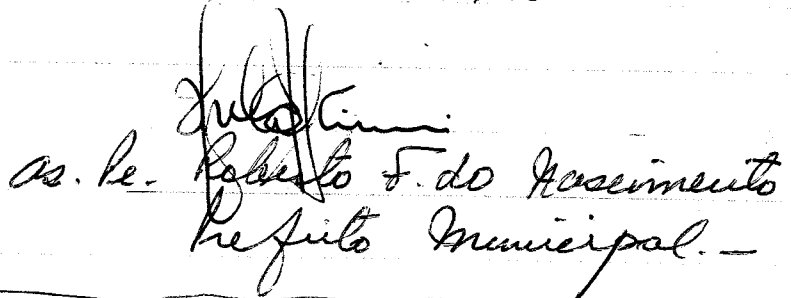 as. Pe. Roberto F. do Nascimento
Prefeito Municipal. _